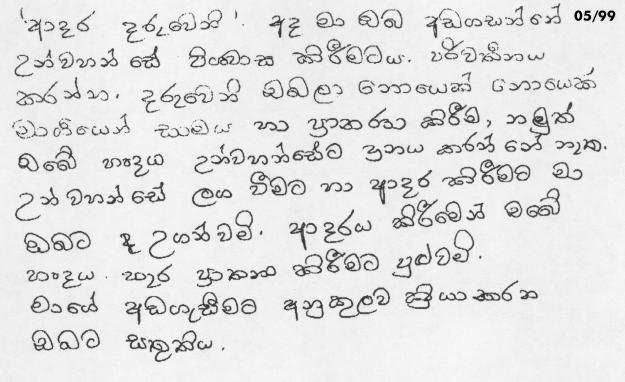 'ආදර දරුවෙනි'. අද මා ඔබ අඩගසන්නේ 05/99
උන්වහන්සේ විශ්වාස කිරීමටය. පරිවර්තනය
කරන්න. දරුවෙනි ඔබලා නොයෙක් නොයෙක්
මාර්ගයෙන් සාමය හා ප්‍රාතරනා කිරීම, නමුත්
ඔබේ හෘදය උන්වහන්සේට ප්‍රනය කරන්නේ නැත.
උන්වහන්සේ ලග වීමට හා ආදර කිරීමට මා
ඔබට ද උගන්වමි. ආදරය කිරීමෙන් ඔබේ
හෘදය හැර ප්‍රාතනා කිරීමට පුළුවමි.
මාගේ අඩගැසීමට අනුකුලව ක්‍රියා කරන
ඔබට සතුතිය.